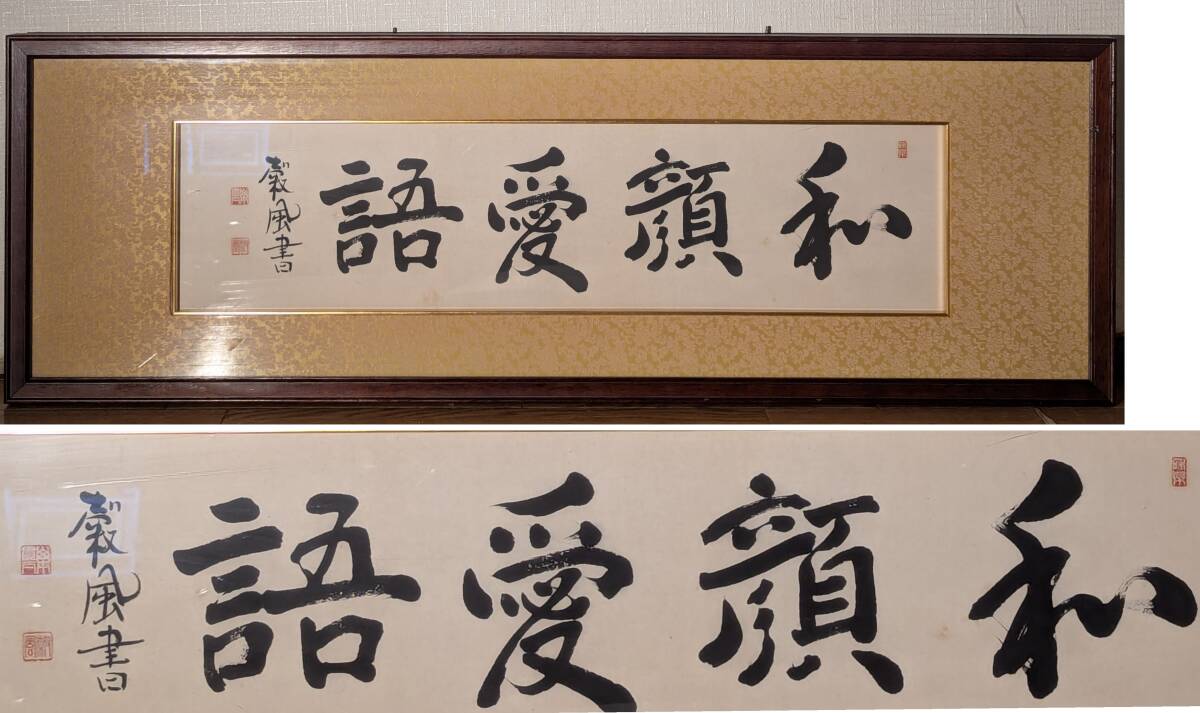 和顔愛語
穀風書
和顔愛語
穀風書